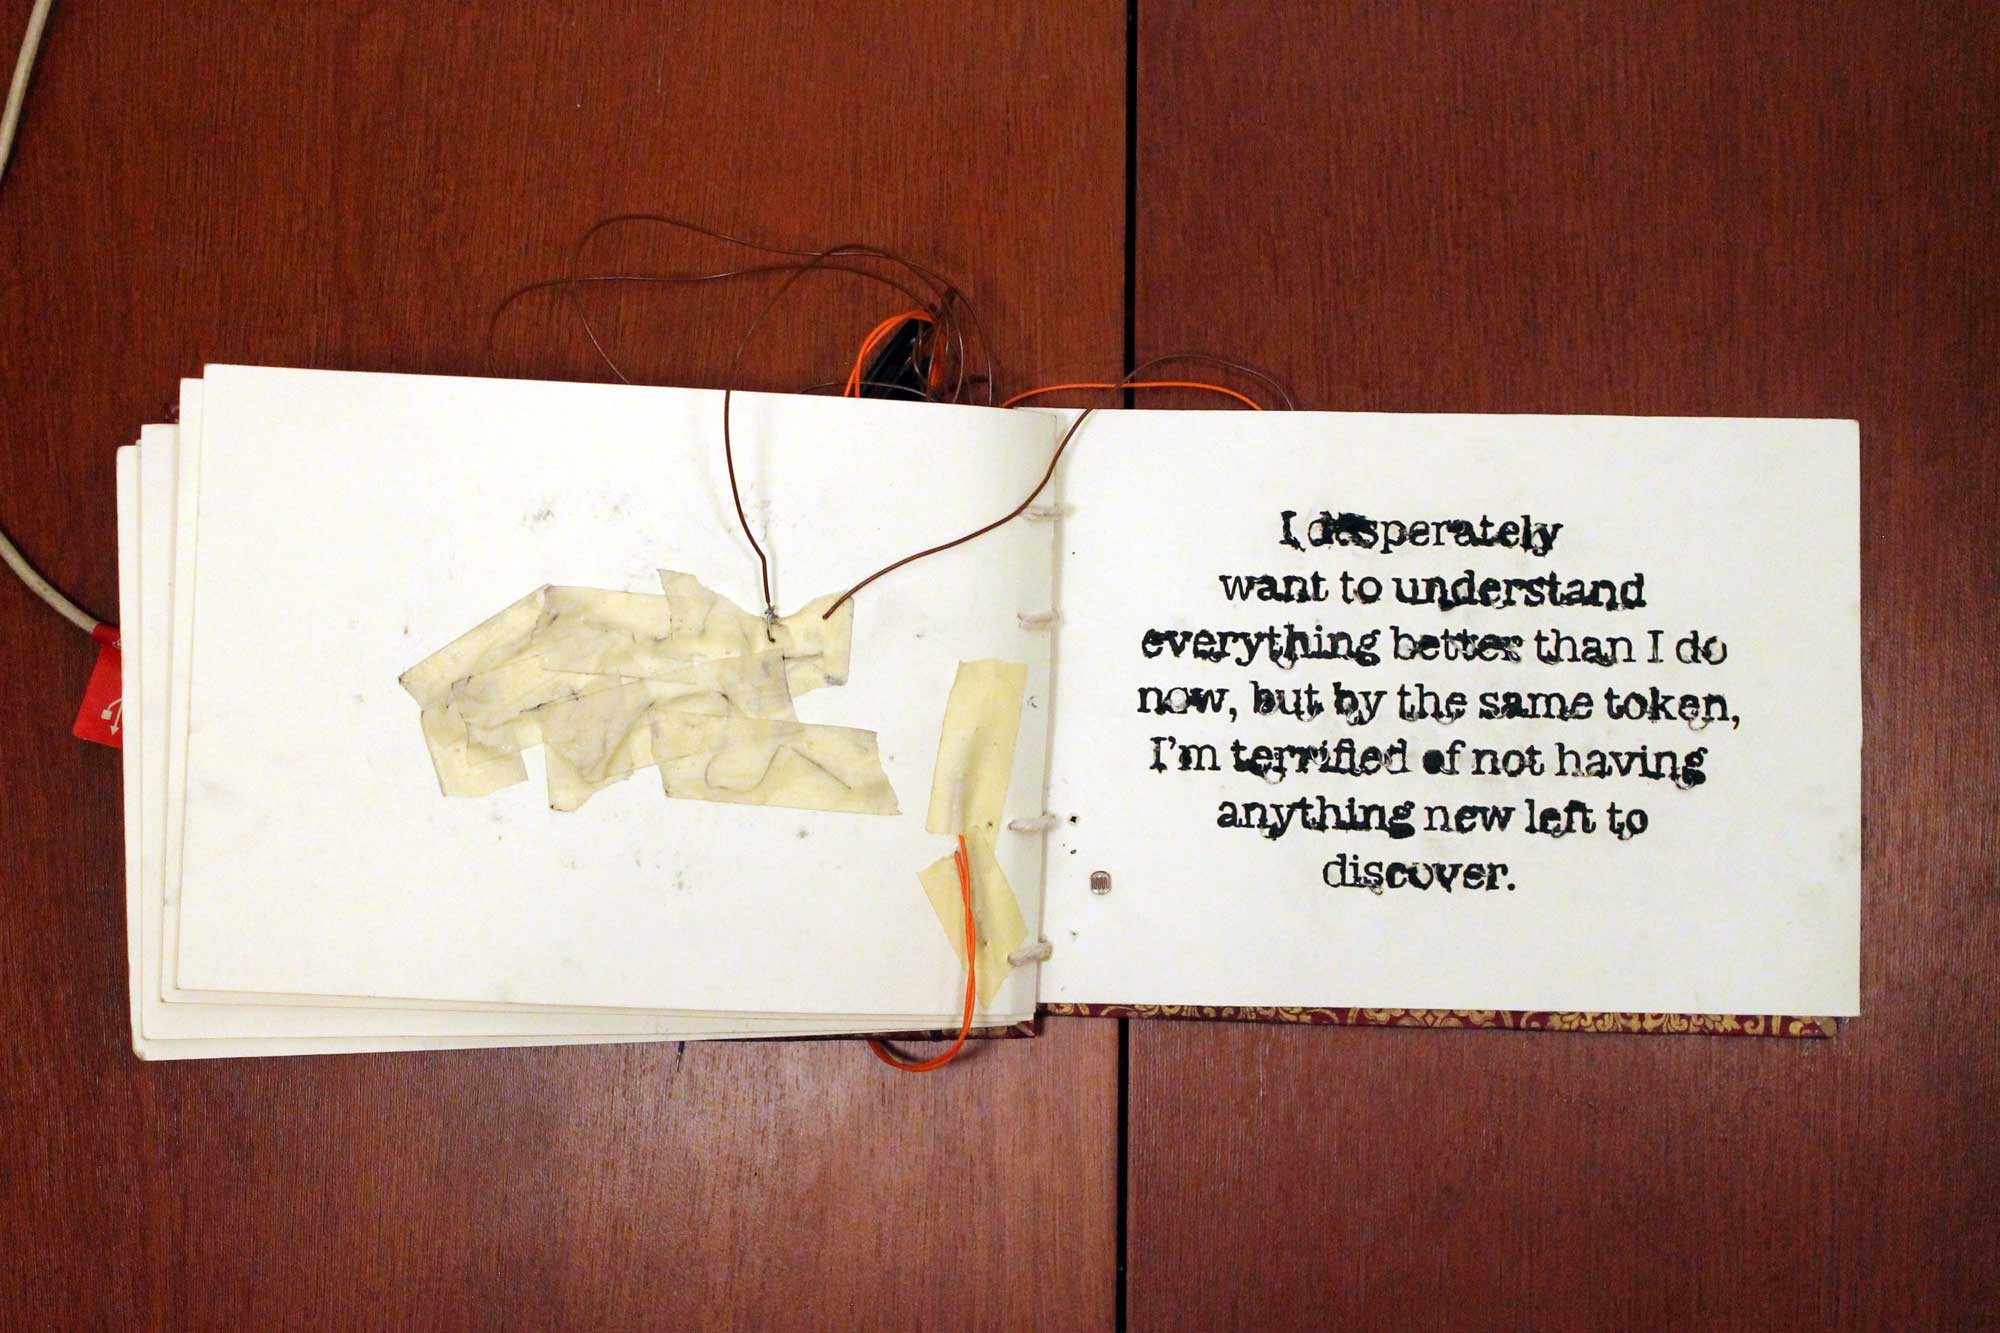 I desperately
want to understand
everything better than I do
now, but by the same token,
I'm terrified of not having
anything new left to
discover.